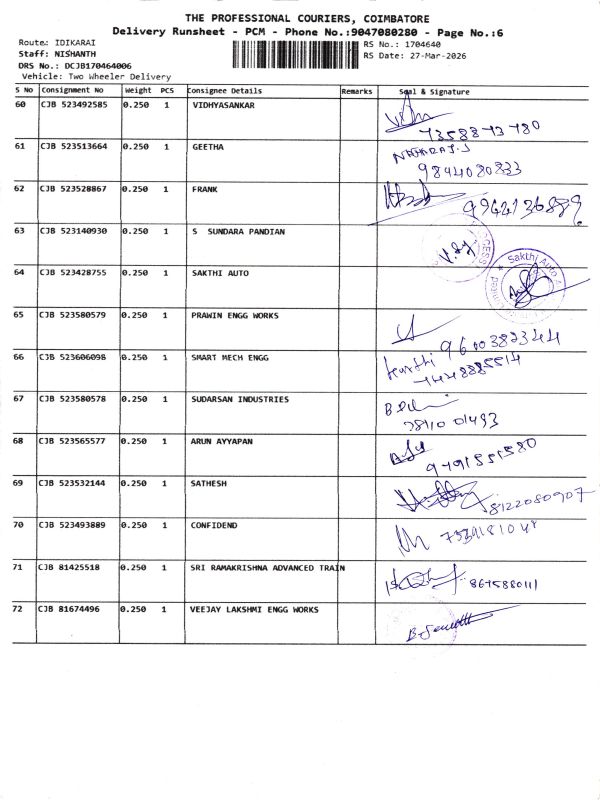 THE PROFESSIONAL COURIERS, COIMBATORE
Delivery Runsheet - PCM - Phone No.:9047080280 - Page No.:6
Route: IDIKARAI
RS No.: 1704640
Staff: NISHANTH
RS Date: 27-Mar-2026
DRS No.: DCJB170464006
Vehicle: Two Wheeler Delivery
S No Consignment No Weight PCS Consignee Details Remarks Seal & Signature
60 CJB 523492585 0.250 1 VIDHYASANKAR
73588 73 780
61 CJB 523513664 0.250 1 GEETHA NAGARAJ.J
9844080833
62 CJB 523528867 0.250 1 FRANK
63 CJB 523140930 0.250 1 S SUNDARA PANDIAN
64 CJB 523428755 0.250 1 SAKTHI AUTO Sakthi Auto
65 CJB 523580579 0.250 1 PRAWIN ENGG WORKS
9600382344
66 CJB 523606098 0.250 1 SMART MECH ENGG
67 CJB 523580578 0.250 1 SUDARSAN INDUSTRIES
68 CJB 523565577 0.250 1 ARUN AYYAPAN
69 CJB 523532144 0.250 1 SATHESH 8122080907
70 CJB 523493889 0.250 1 CONFIDEND
71 CJB 81425518 0.250 1 SRI RAMAKRISHNA ADVANCED TRAIN
8675880111
72 CJB 81674496 0.250 1 VEEJAY LAKSHMI ENGG WORKS